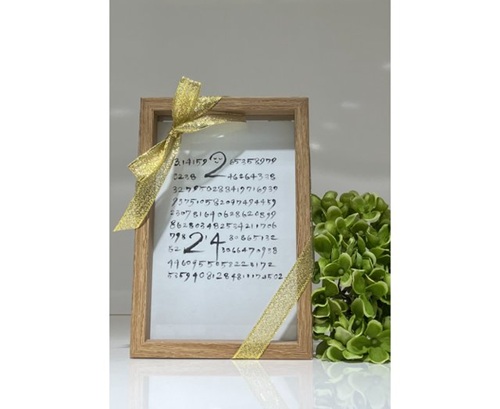 3.14159 2 65358979
3238 46264338
327950288419716939
937510582097494459
230781640628620899
862803482534211706
798 214 80865132
82 3066470938
4460955058223172
53594081284811174502